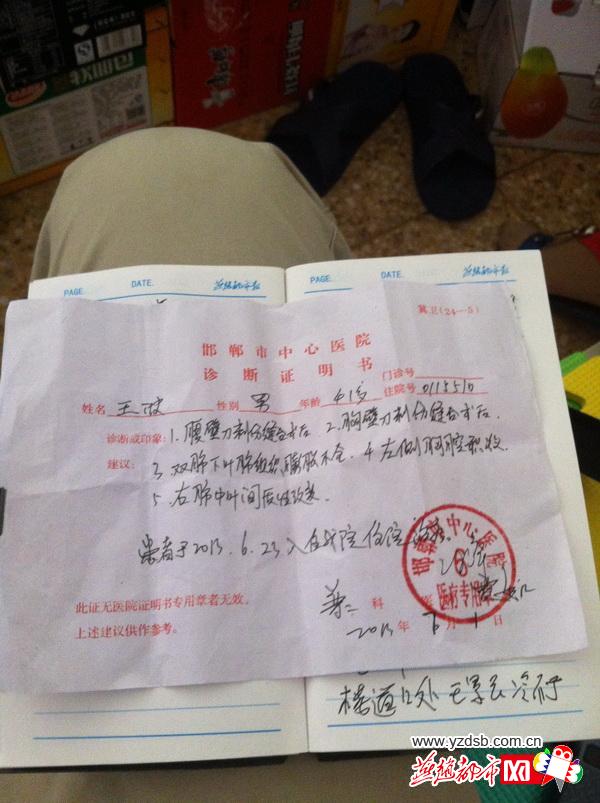 PAGE. DATE. 燕赵都市报 PAGE. DATE. 燕赵都市报
冀卫(24—5)
邯郸市中心医院
诊断证明书
门诊号
姓名 王 性别 男 年龄 41岁 住院号 0115510
诊断或印象: 1. 腹壁刀刺伤缝合术后 2. 胸壁刀刺伤缝合术后
建议: 3. 双肺下叶肺组织膨胀不全. 4. 左侧胸腔积液
5. 右肺中叶间质性改变.
患者于2013.6.23入住我院住院治疗.
邯郸市中心医院
医疗专用章
此证无医院证明书专用章者无效。
普二 科 医
上述建议供作参考。
2013年 月 1 日
楼道口处
www.yzdsb.com.cn
燕赵都市网